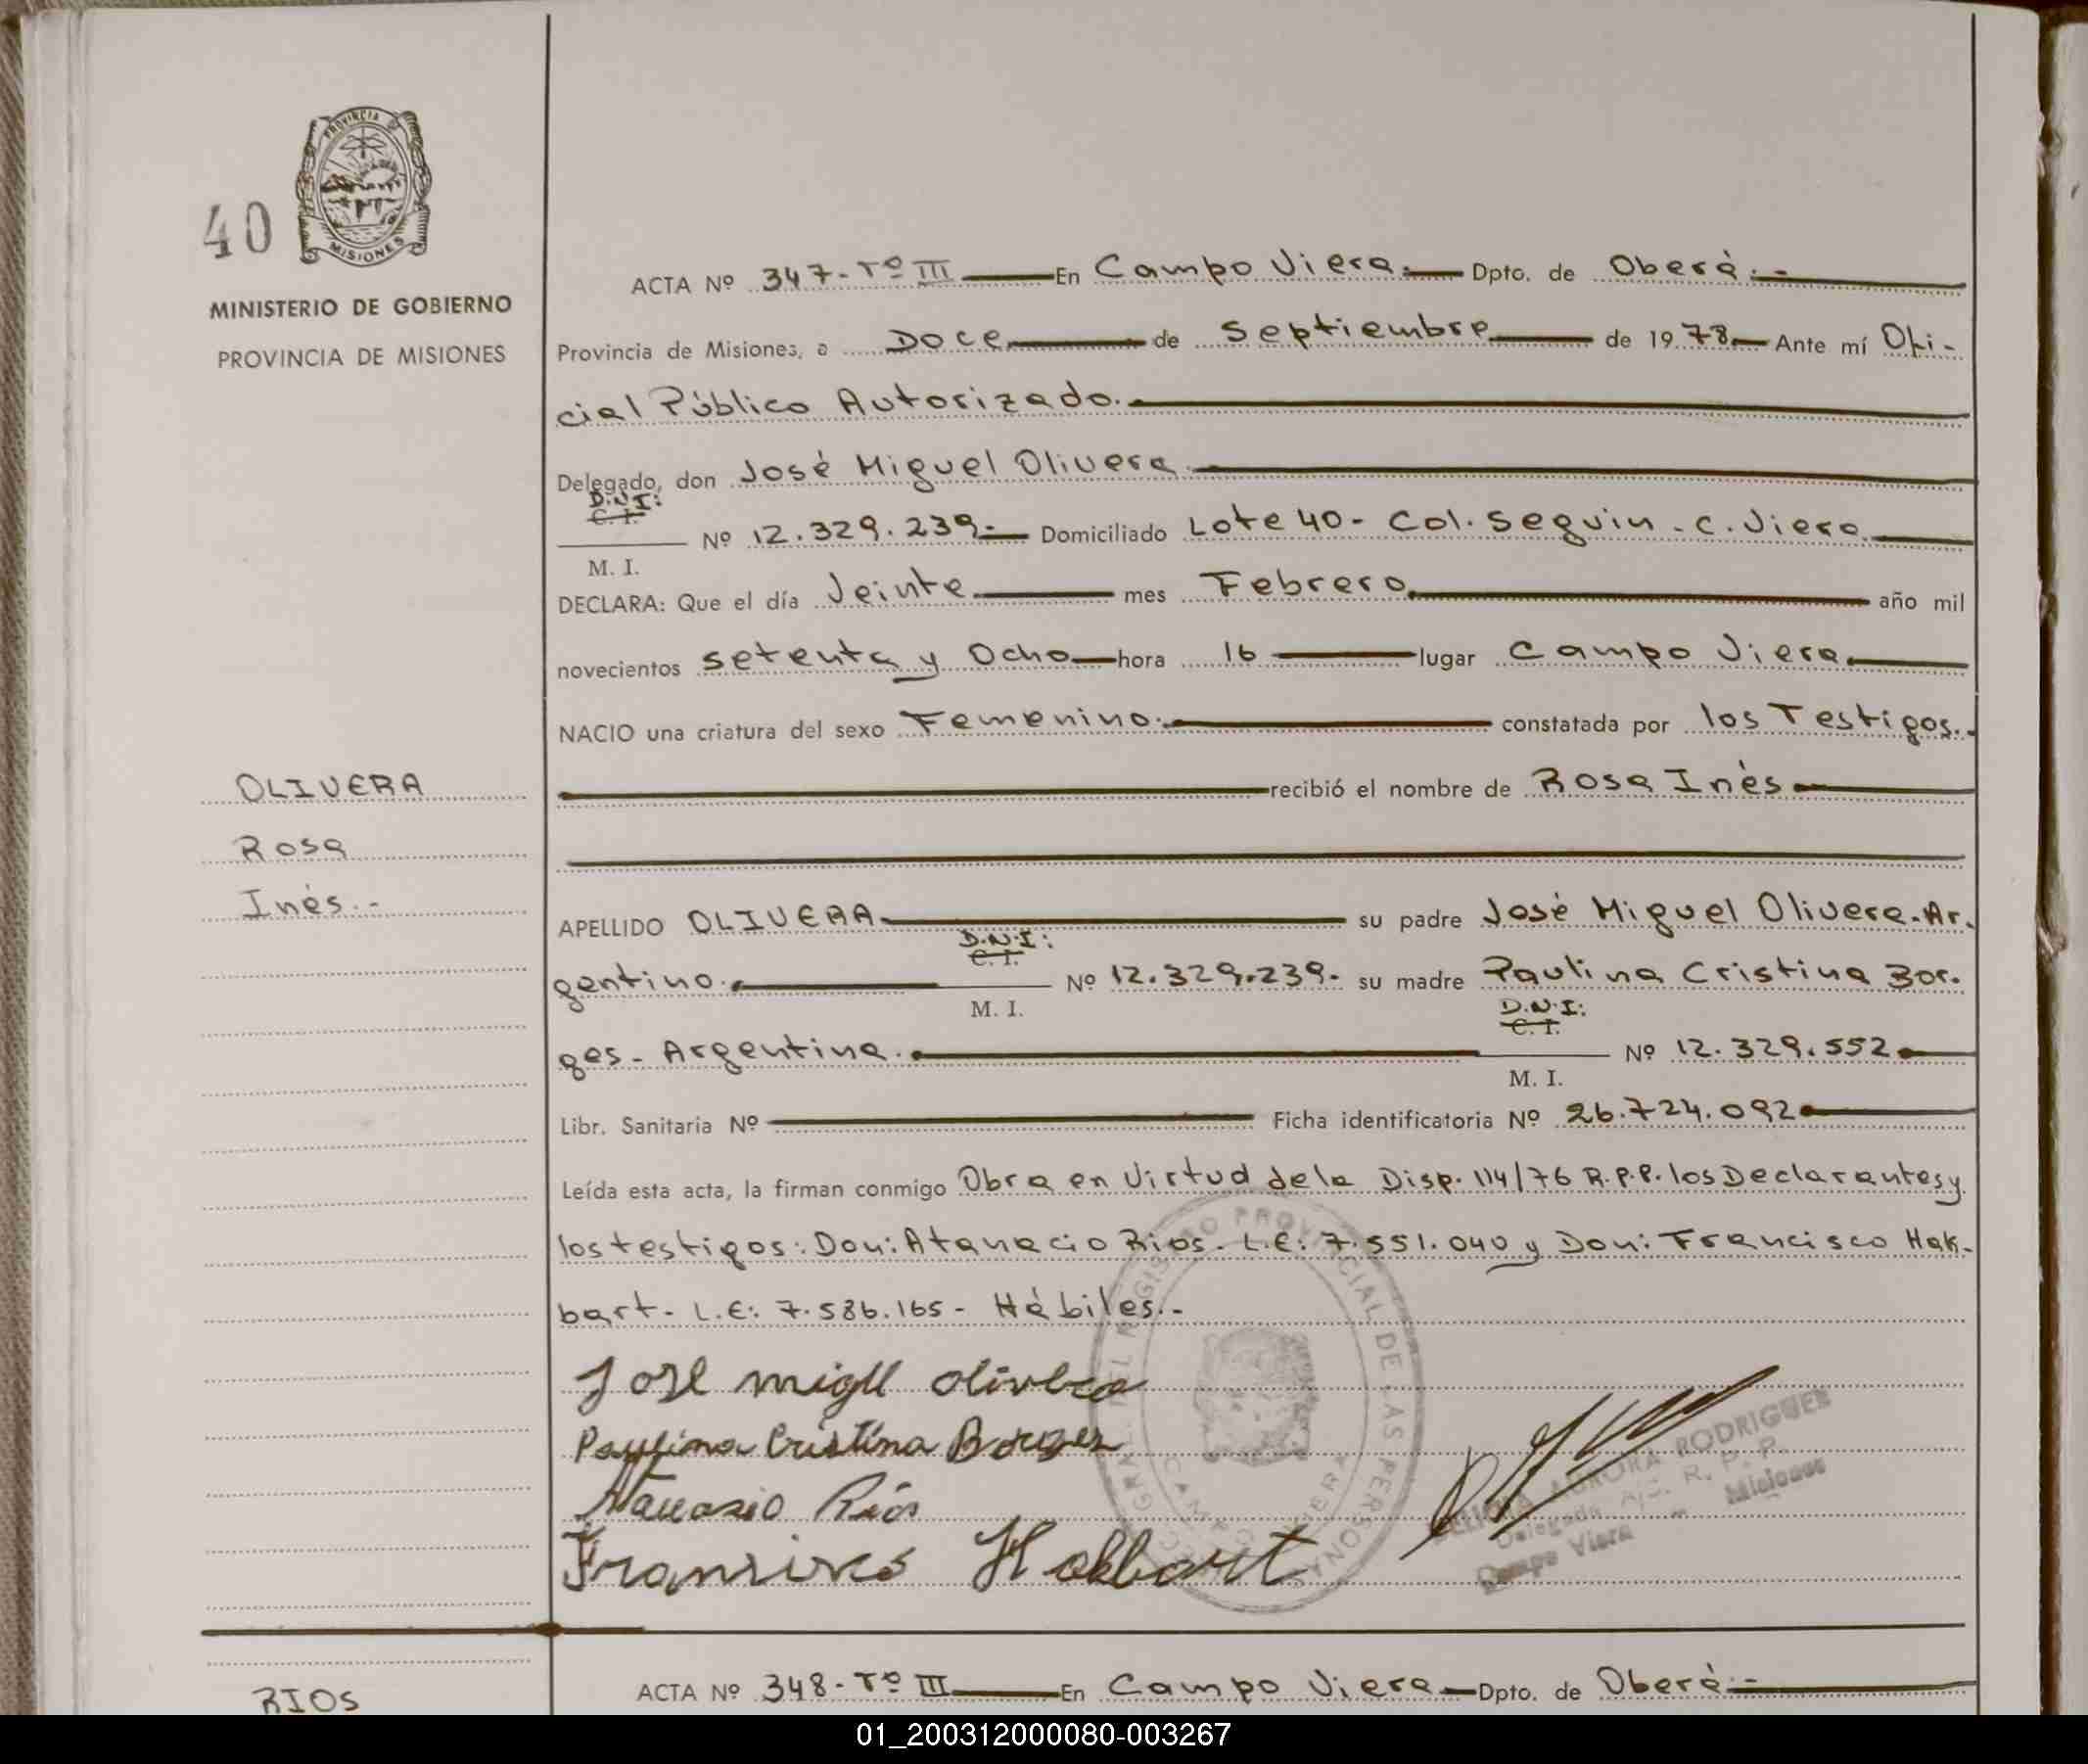 PROVINCIA
MISIONES
40
MINISTERIO DE GOBIERNO
PROVINCIA DE MISIONES
ACTA Nº 347-Tº III En Campo Viera. Dpto. de Oberá.-
Provincia de Misiones, a Doce de Septiembre de 1978 Ante mí Ofi-
cial Público Autorizado.
Delegado, don José Miguel Olivera
D.N.I:
C. I.
Nº 12.329.239- Domiciliado Lote 40- Col. Seguin - C. Viera.
M. I.
DECLARA: Que el día Veinte mes Febrero año mil
novecientos setenta y Ocho hora 16 lugar Campo Viera.
NACIO una criatura del sexo Femenino. constatada por los Testigos.-
OLIVERA
recibió el nombre de Rosa Inés
Rosa
Inés.-
APELLIDO OLIVERA su padre José Miguel Olivera-Ar.
D.N.I:
C. I.
gentino. Nº 12.329.239- su madre Paulina Cristina Bor.
M. I.
D.N.I:
C. I.
ges- Argentina. Nº 12.329.552
M. I.
Libr. Sanitaria Nº Ficha identificatoria Nº 26.724.092
Leída esta acta, la firman conmigo Obra en Virtud de la Disp. 114/76 R.P.P. los Declarantes y
los testigos: Don: Atanacio Rios- L.E: 7.551.040 y Don: Francisco Hak-
bart- L.E: 7.586.165- Hábiles.-
Jose migel olivera
Paulina Cristina Borges
Atanasio Ríos
Francisco Hakbart
REGISTRO PROVINCIAL DE LAS PERSONAS
CAMPO VIERA
AURORA RODRIGUEZ
Delegada R. P. P.
Campo Viera - Misiones
RIOS
ACTA Nº 348-Tº III En Campo Viera Dpto. de Oberá-
01_200312000080-003267